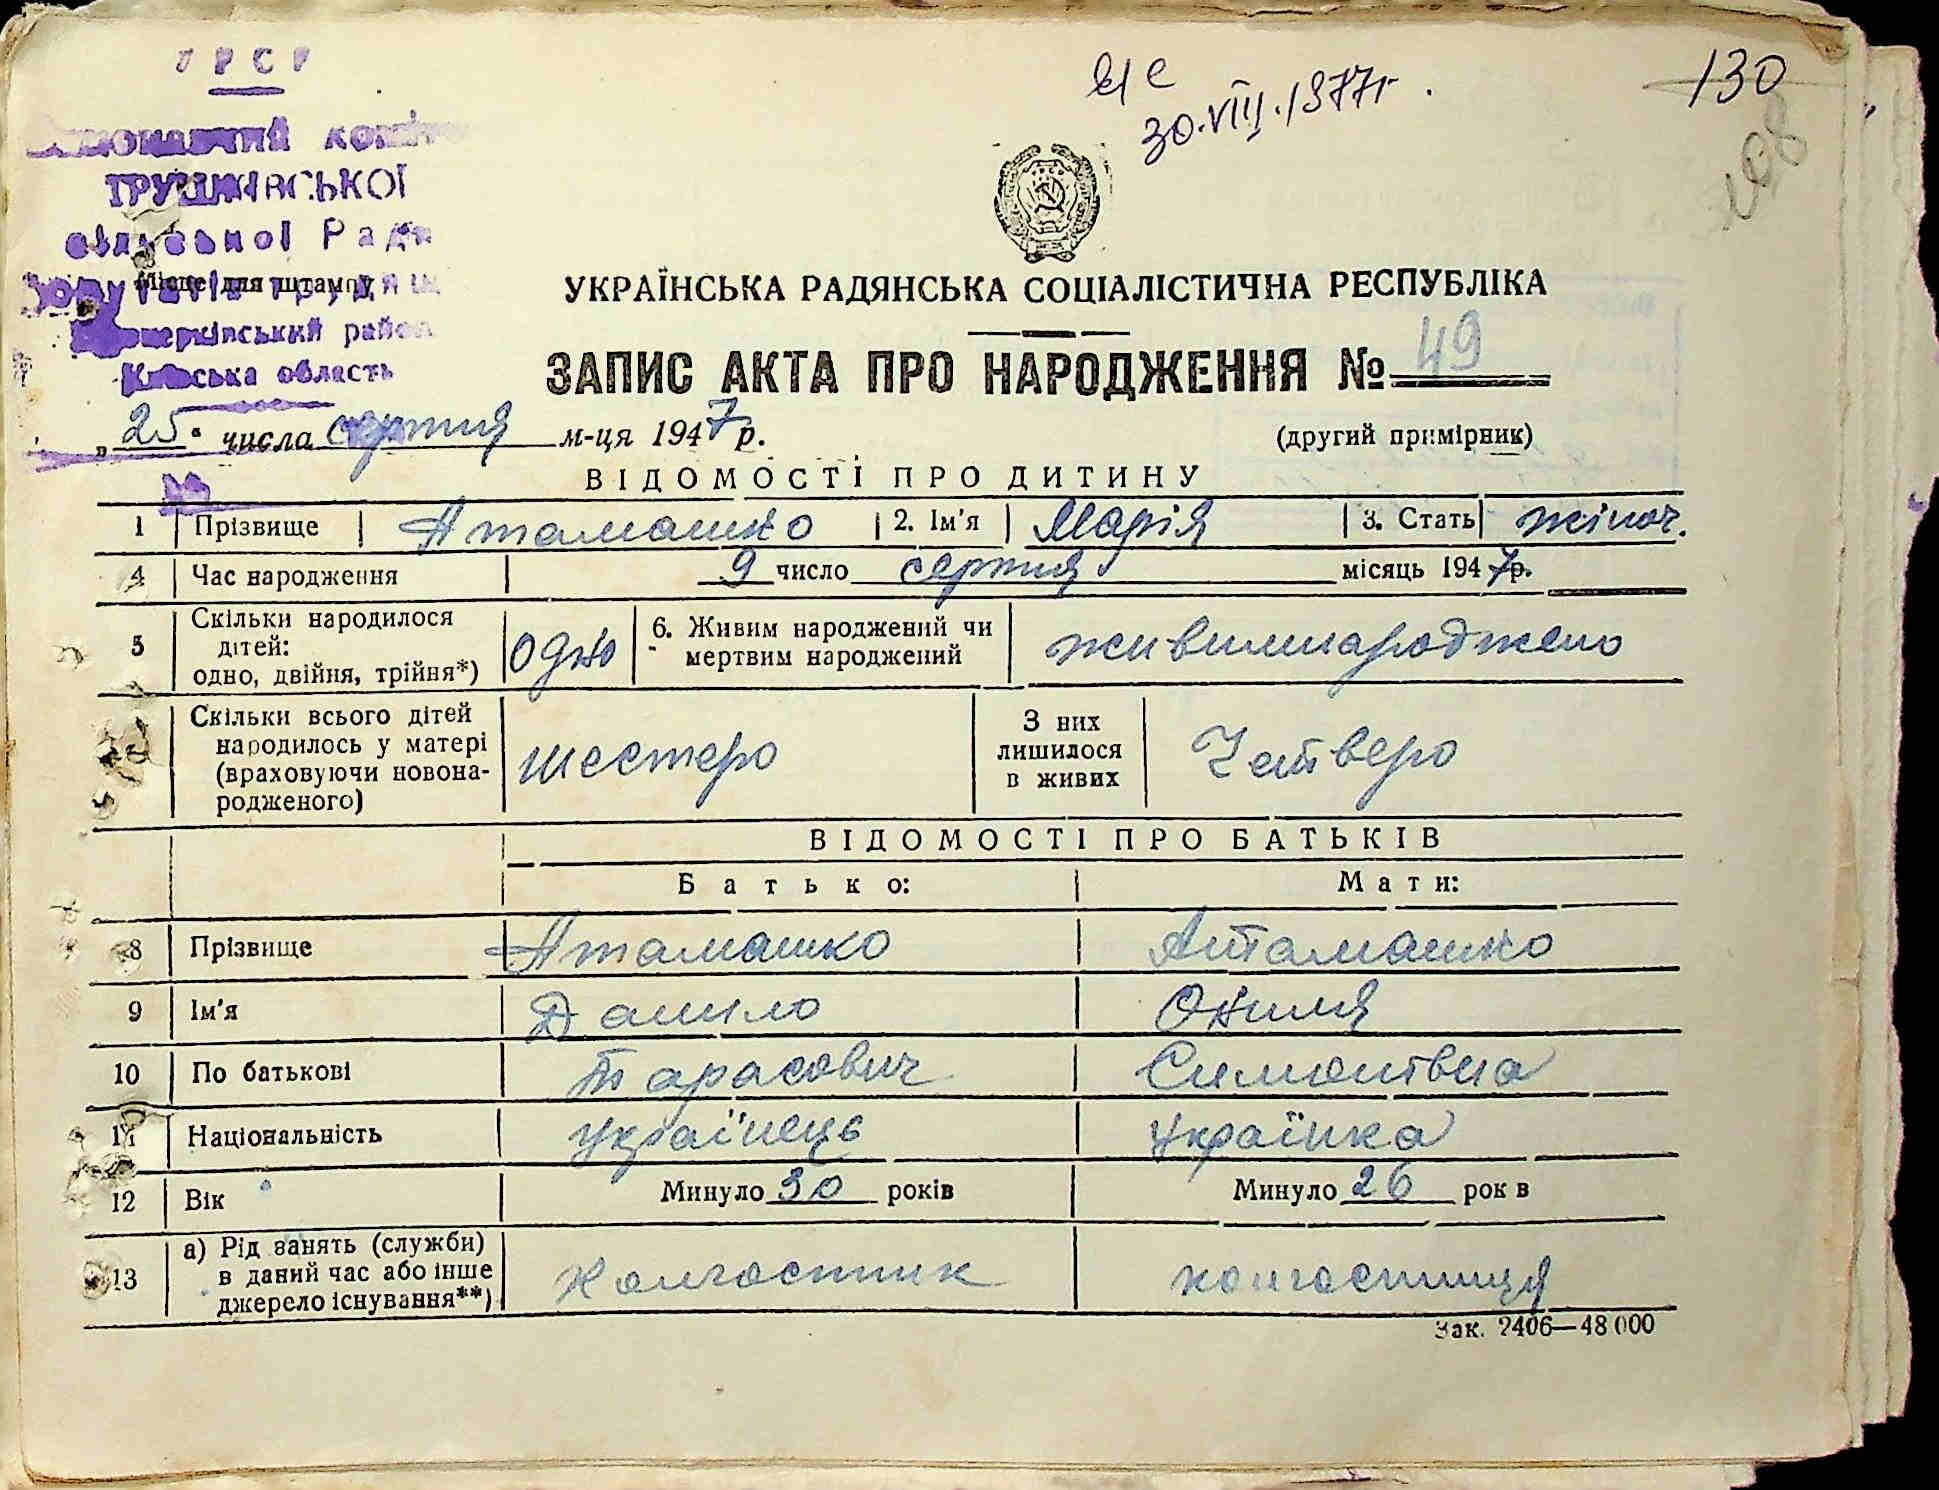 УРСР
ТРУШКІВСЬКОЇ
сільської Ради
Місце для штампу
район
Київська область
30.VIII.1977г.
130
УКРАЇНСЬКА РАДЯНСЬКА СОЦІАЛІСТИЧНА РЕСПУБЛІКА
ЗАПИС АКТА ПРО НАРОДЖЕННЯ № 49
„25“ числа серпня м-ця 1947 р.
(другий примірник)
ВІДОМОСТІ ПРО ДИТИНУ
1 Прізвище Атамашко 2. Ім'я Марія 3. Стать жіноч.
4 Час народження 9 число серпня місяць 1947р.
5 Скільки народилося дітей: одно, двійня, трійня*) одно 6. Живим народжений чи мертвим народжений живимнароджено
Скільки всього дітей народилось у матері (враховуючи новонародженого) шестеро З них лишилося в живих Четверо
ВІДОМОСТІ ПРО БАТЬКІВ
Батько: Мати:
8 Прізвище Атамашко Атамашко
9 Ім'я Данило Окиля
10 По батькові Тарасович Симонівна
11 Національність українець українка
12 Вік Минуло 30 років Минуло 26 рок в
13 а) Рід занять (служби) в даний час або інше джерело існування**) Колгостник колгостниця
Зак. 2406—48 000